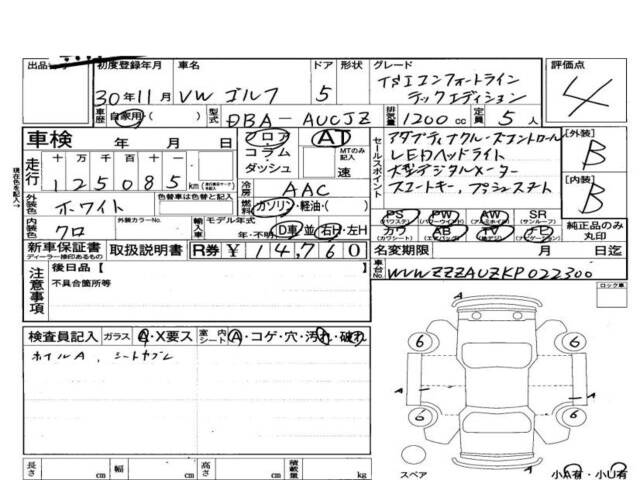 出品番号 初度登録年月 車名 ドア 形状 グレード 評価点
30年11月 VW ゴルフ 5 TSIコンフォートライン
テックエディション 4
車歴 自家用・( ) 型式 DBA-AUCJZ 排気量 1200cc 定員 5人
車検 年 月 日 フロア AT
コラム MTのみ記入
ダッシュ 速
セールスポイント アダプティブクルーズコントロール
LEDヘッドライト
大型デジタルメーター
スマートキー、プッシュスタート
[外装] B
[内装] B
現在色を記入→
走行 十 万 千 百 十
125085km
外装色 ホワイト 色替車は色替と記入
冷房 AAC
燃料 ガソリン・軽油・( )
内装色 クロ 外装カラーNo. 輸入車 モデル年式
年・不明 D車 並 右H・左H
PS PW AW SR
(パワステ) (パワーウインド) (アルミホイル) (サンルーフ)
カワ AB TV ナビ
(カワシート) (エアバッグ) 純正品のみ丸印
新車保証書 取扱説明書 R券 ¥14,760 名変期限 月 日迄
ディーラー捺印あるもの
車台No. WVWZZZAUZKP022300
注意事項 後日品【 】
不具合箇所等
ロック車
検査員記入 ガラス A・X要ス 室内シート A・コゲ・穴・汚れ・破れ
ホイルA、シートヤブレ
A
6 6
A A
6 6
スペア
長さ cm 幅 cm 高さ cm 積載量 kg
小A有・小U有